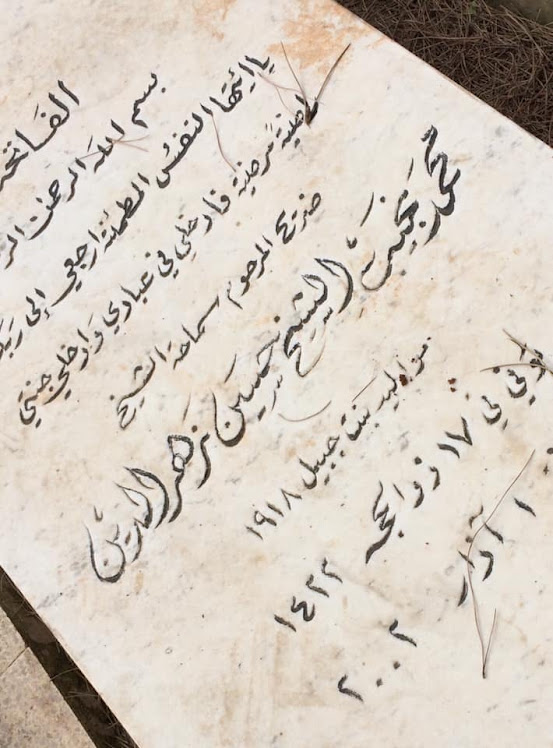 الفاتحة
بسم الله الرحمن
يا ايتها النفس المطمئنة ارجعي إلى ربك
راضية مرضية فادخلي في عبادي وادخلي جنتي
ضريح المرحوم سماحة الشيخ
محمد نجيب الشيخ حسين زهر الدين
مواليد بنت جبيل ١٩١٨
توفي في ١٧ ذو الحجه ١٤٢٢
١ آذار ٢٠٠٢